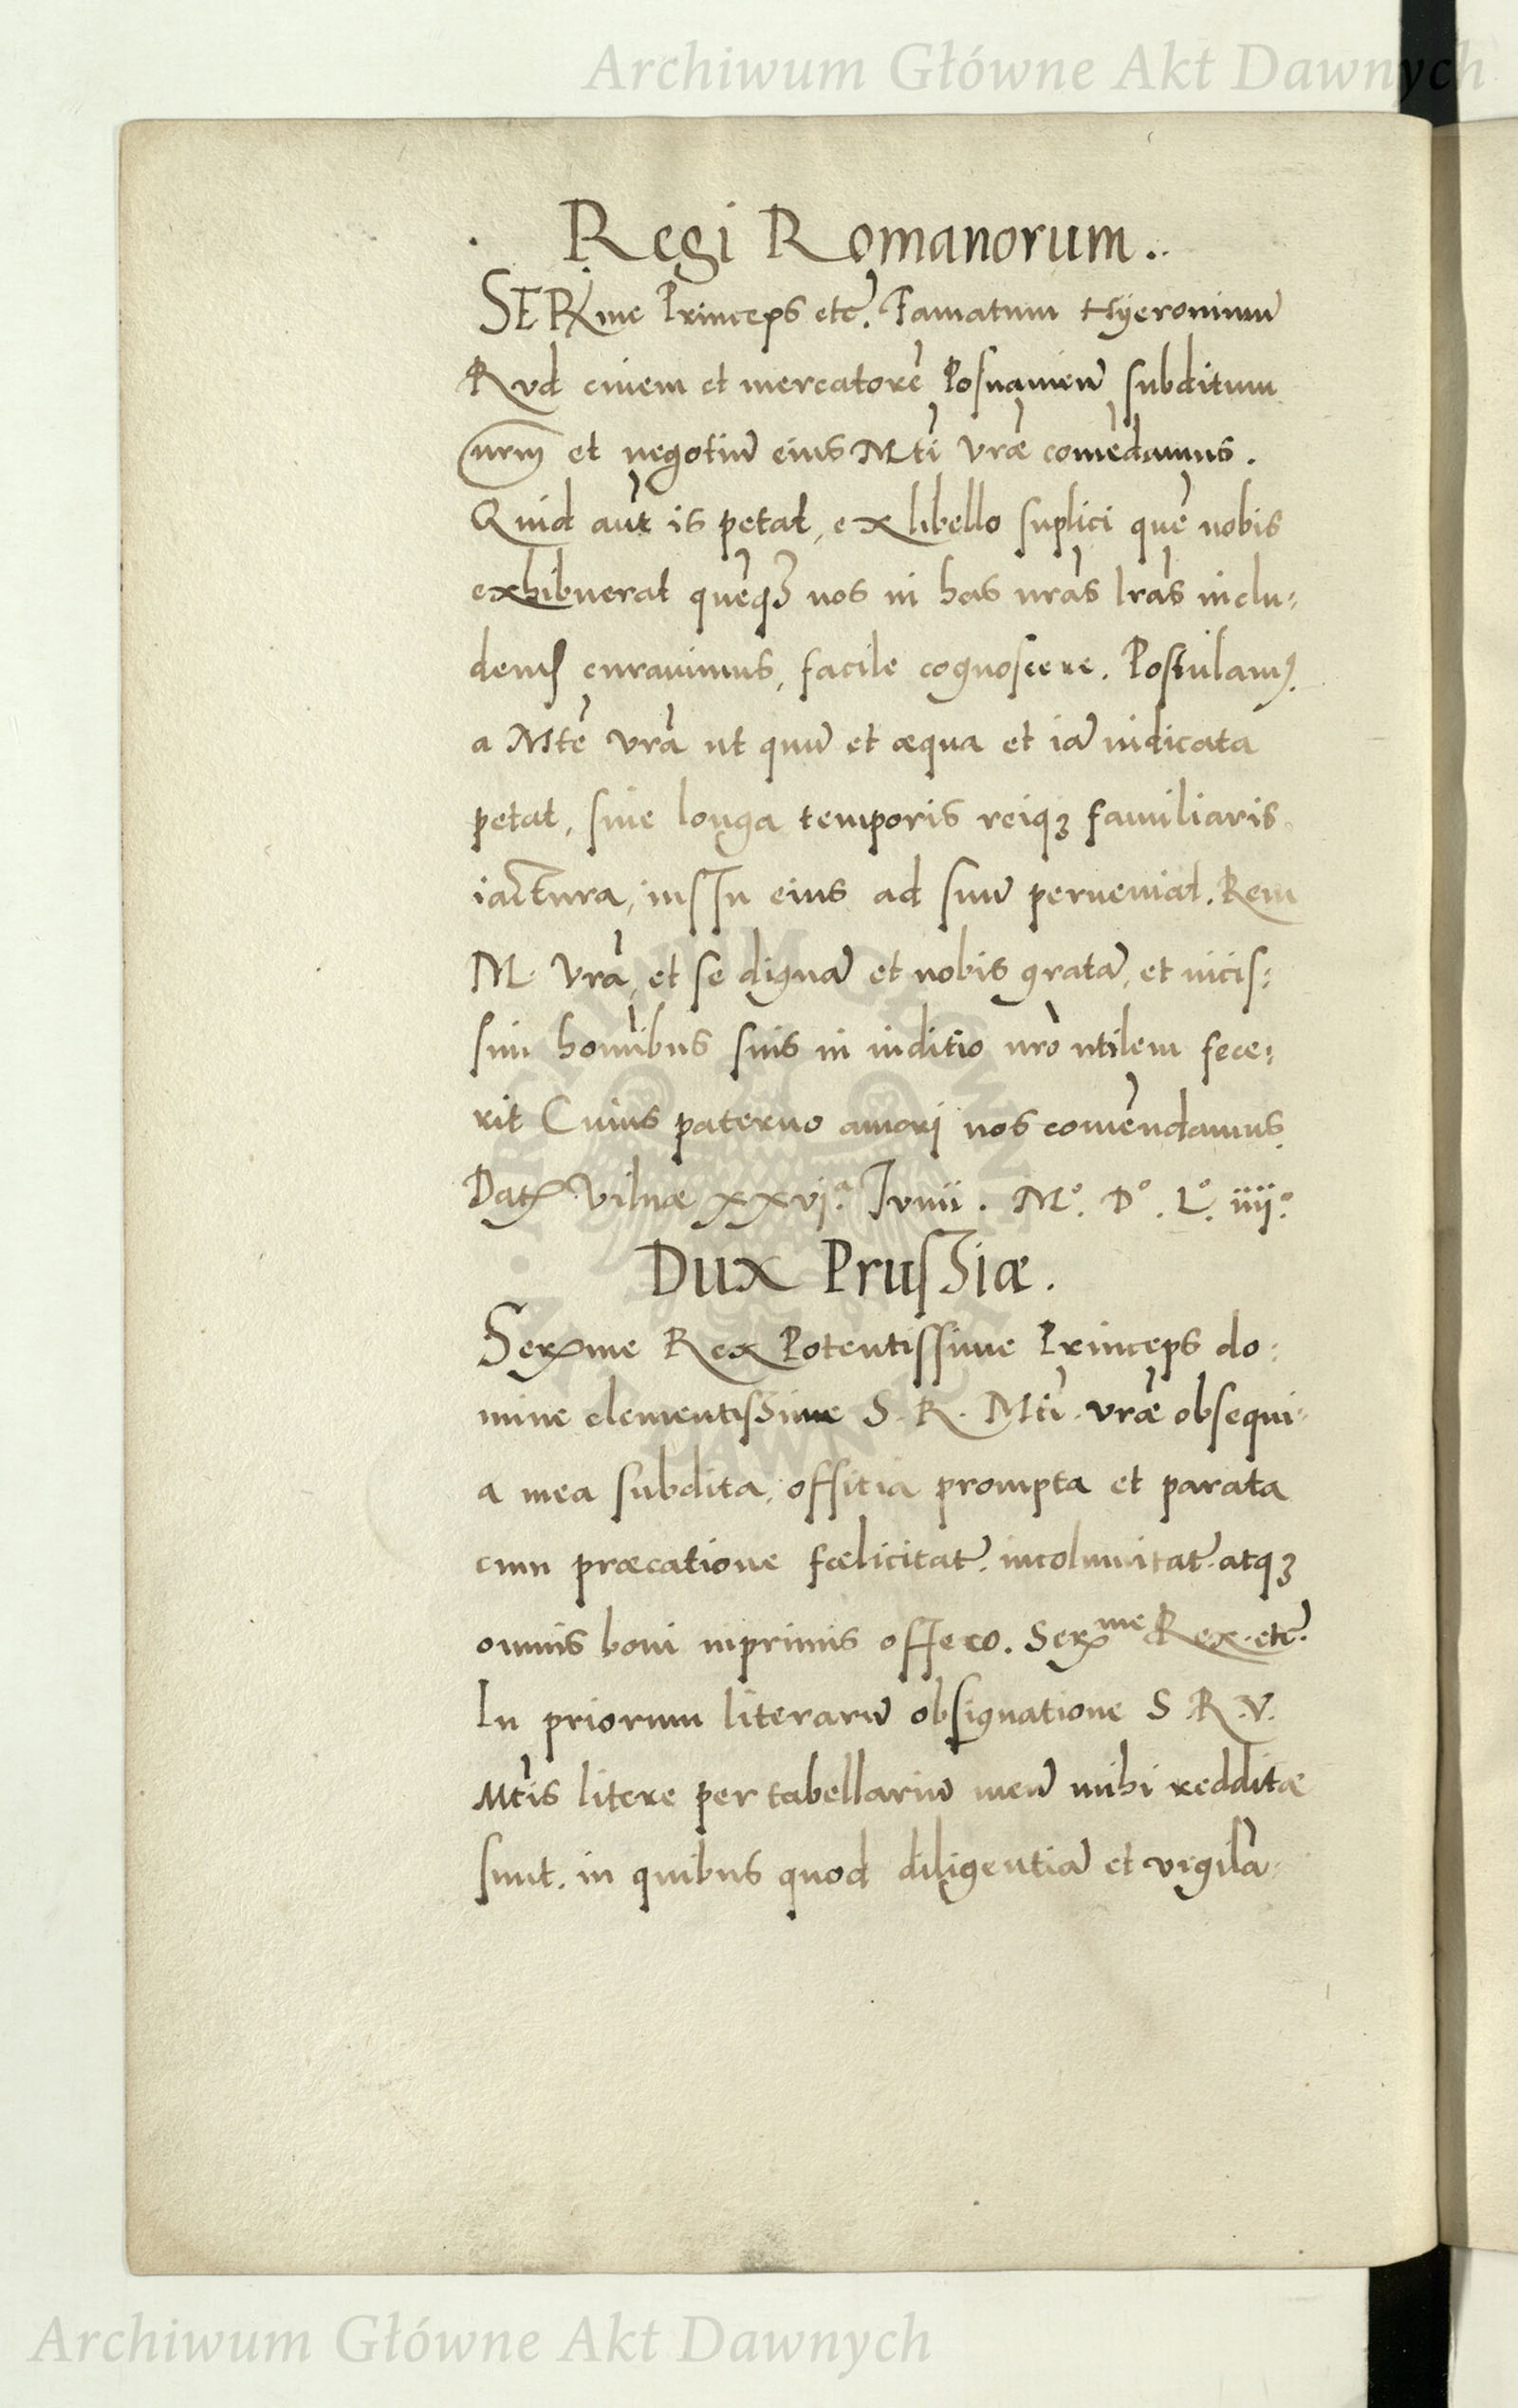 Archiwum Główne Akt Dawnych
Regi Romanorum.
SERme Princeps etc. Famatum Hyeronimū
Rvd ciuem et mercatorē Posnamień subditum
nrm et negotiū eius Mti vræ comēdamus.
Quid aut is petat, ex libello suplici quē nobis
exhibuerat quēq3 nos in has nras lras inclu:
dendum curauimus, facile cognoscere. Postulamus
a Mte vra ut quū et æqua et iā iudicata
petat, sine longa temporis reiq3 familiaris
iactura, iussu eius ad suū perueniat. Rem
M. vra, et se dignā et nobis gratā, et uicis:
sim homībus suis in inditio nro utilem fece:
rit Cuius paterno amori nos comēndamus.
Dat. Vilnæ xxvj.ª Junii. M.º D.º L.º iiij.º
Dux Prussiæ.
Serme Rex Potentissime Princeps do:
mine clementissime S. R. Mti. vræ obsequi:
a mea subdita, offitia prompta et parata
cum præcatione fœlicitat. incolumitat. atq3
omnis boni inprimis offero. Serme Rex. etc.
In priorum literarū obsignatione S. R. V.
Mtis litere per tabellariū meū mihi redditæ
sunt. in quibus quod diligentiā et vigilā:
Archiwum Główne Akt Dawnych